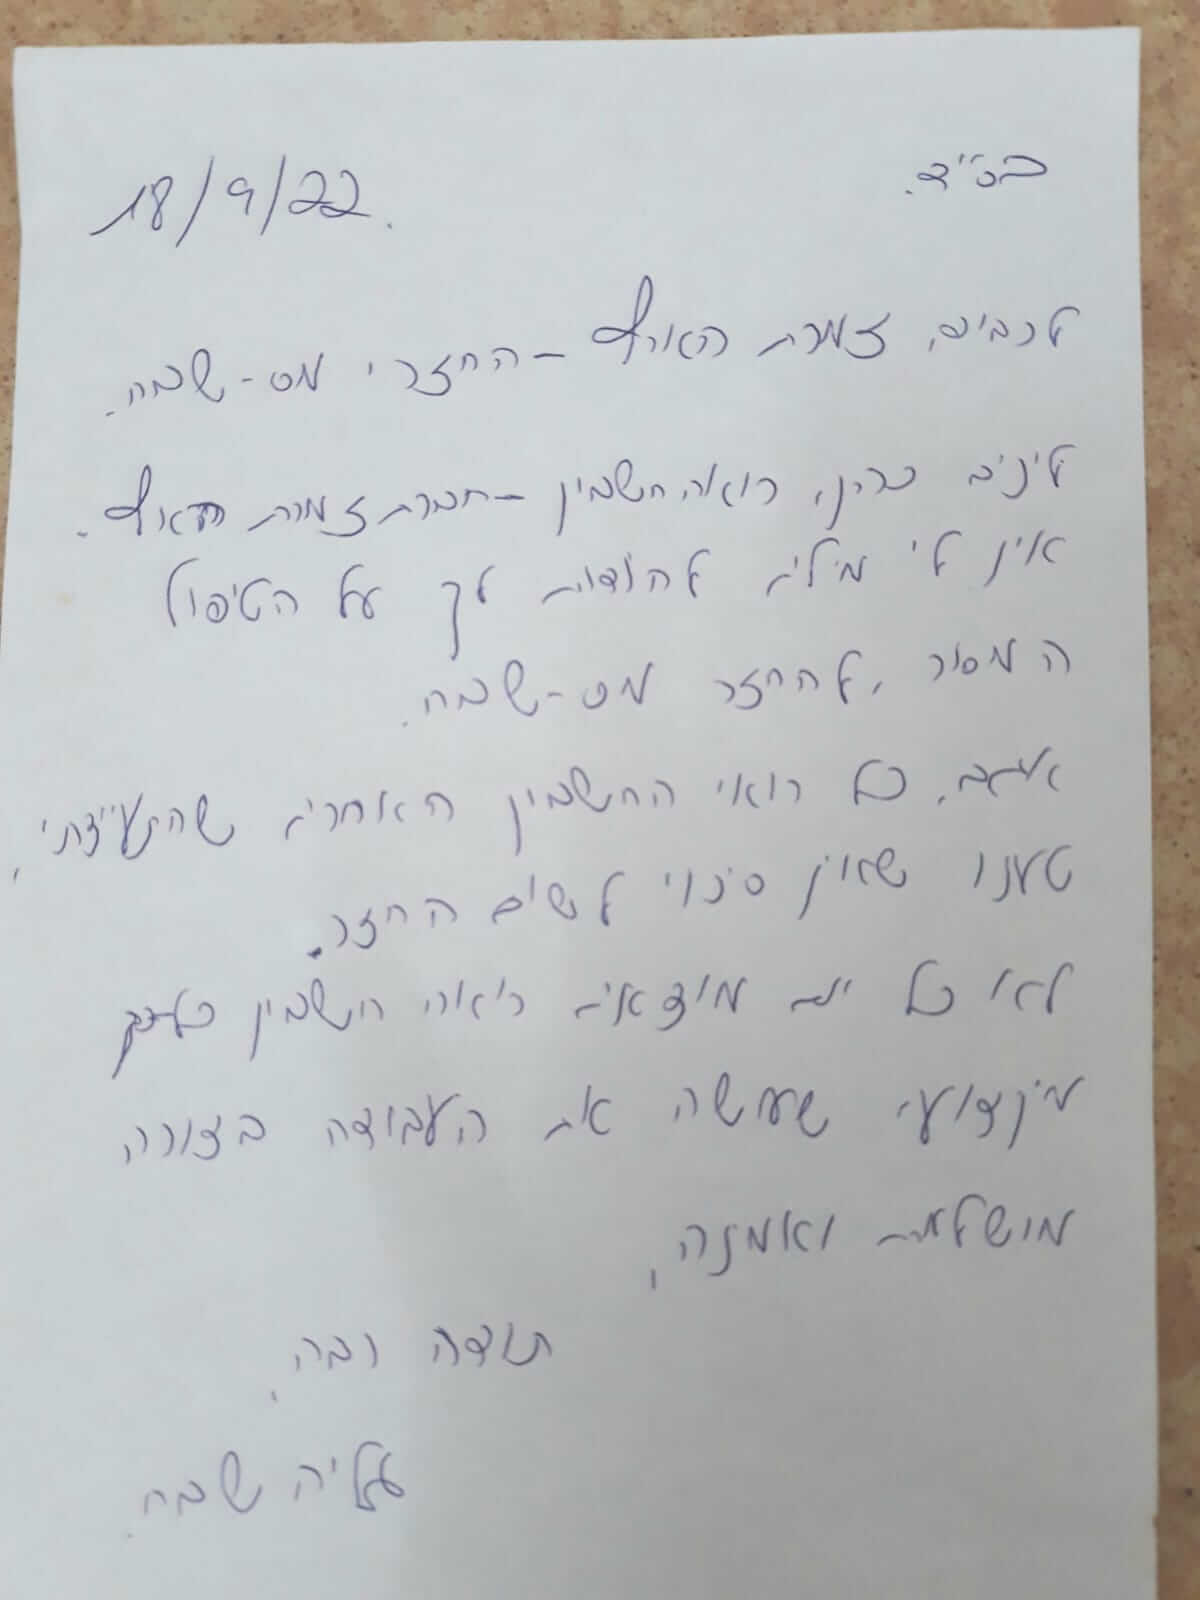 בס"ד. 18/9/22.
לכבוד, זמרת הארץ - החזרי מס-שבח.
ליניב כהן, רואה חשבון - חברת זמרת הארץ.
אין לי מילים להודות לך על הטיפול
המסור, להחזר מס-שבח.
אגב, כל רואי החשבון האחרים שהתיעצתי,
טענו שאין סיכוי לשום החזר.
לא כל יום מוצאים רואה חשבון כלכך
מיקצועי שעושה את העבודה בצורה
מושלמת ואמנה,
תודה רבה,
עליה שבח.